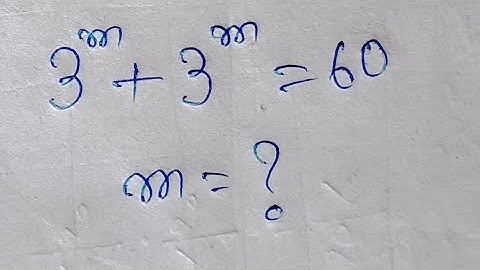 3^m + 3^m = 60
m = ?